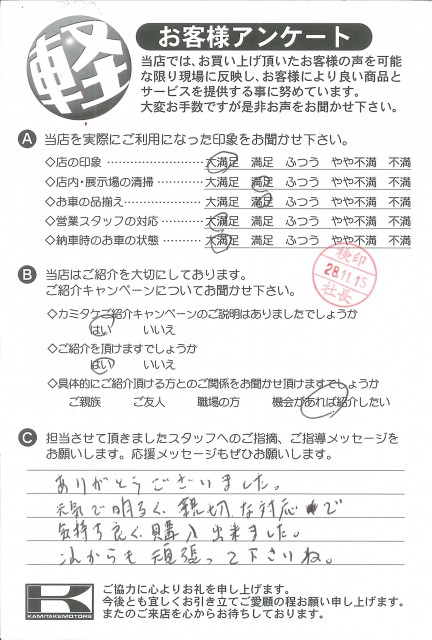 軽
お客様アンケート
当店では、お買い上げ頂いたお客様の声を可能
な限り現場に反映し、お客様により良い商品と
サービスを提供する事に努めています。
大変お手数ですが是非お声をお聞かせ下さい。
A 当店を実際にご利用になった印象をお聞かせ下さい。
◇店の印象 ……………………… 大満足 満足 ふつう やや不満 不満
◇店内・展示場の清掃 ………… 大満足 満足 ふつう やや不満 不満
◇お車の品揃え ………………… 大満足 満足 ふつう やや不満 不満
◇営業スタッフの対応 ………… 大満足 満足 ふつう やや不満 不満
◇納車時のお車の状態 ………… 大満足 満足 ふつう やや不満 不満
検印
28.11.15
社長
B 当店はご紹介を大切にしております。
ご紹介キャンペーンについてお聞かせ下さい。
◇カミタケご紹介キャンペーンのご説明はありましたでしょうか
はい いいえ
◇ご紹介を頂けますでしょうか
はい いいえ
◇具体的にご紹介頂ける方とのご関係をお聞かせ頂けますでしょうか
ご親族 ご友人 職場の方 機会があれば紹介したい
C 担当させて頂きましたスタッフへのご指摘、ご指導メッセージを
お願いします。応援メッセージもぜひお願いします。
ありがとうございました。
元気で明るく、親切な対応で
気持ち良く購入出来ました。
これからも頑張って下さいね。
K
KAMITAKEMOTORS
ご協力に心よりお礼を申し上げます。
今後とも宜しくお引き立てご愛顧の程お願い申し上げます。
またのご来店を心からお待ちしております。